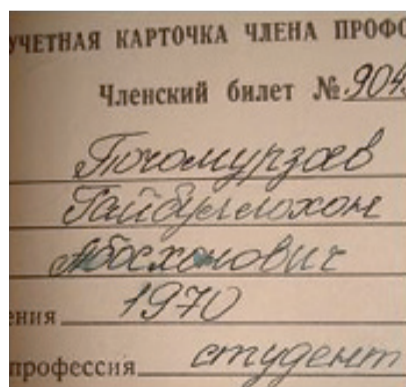 УЧЕТНАЯ КАРТОЧКА ЧЛЕНА ПРОФС
Членский билет № 904
Точомурзоев
Гайбуллохон
Абосхонович
ения 1970
профессия студент